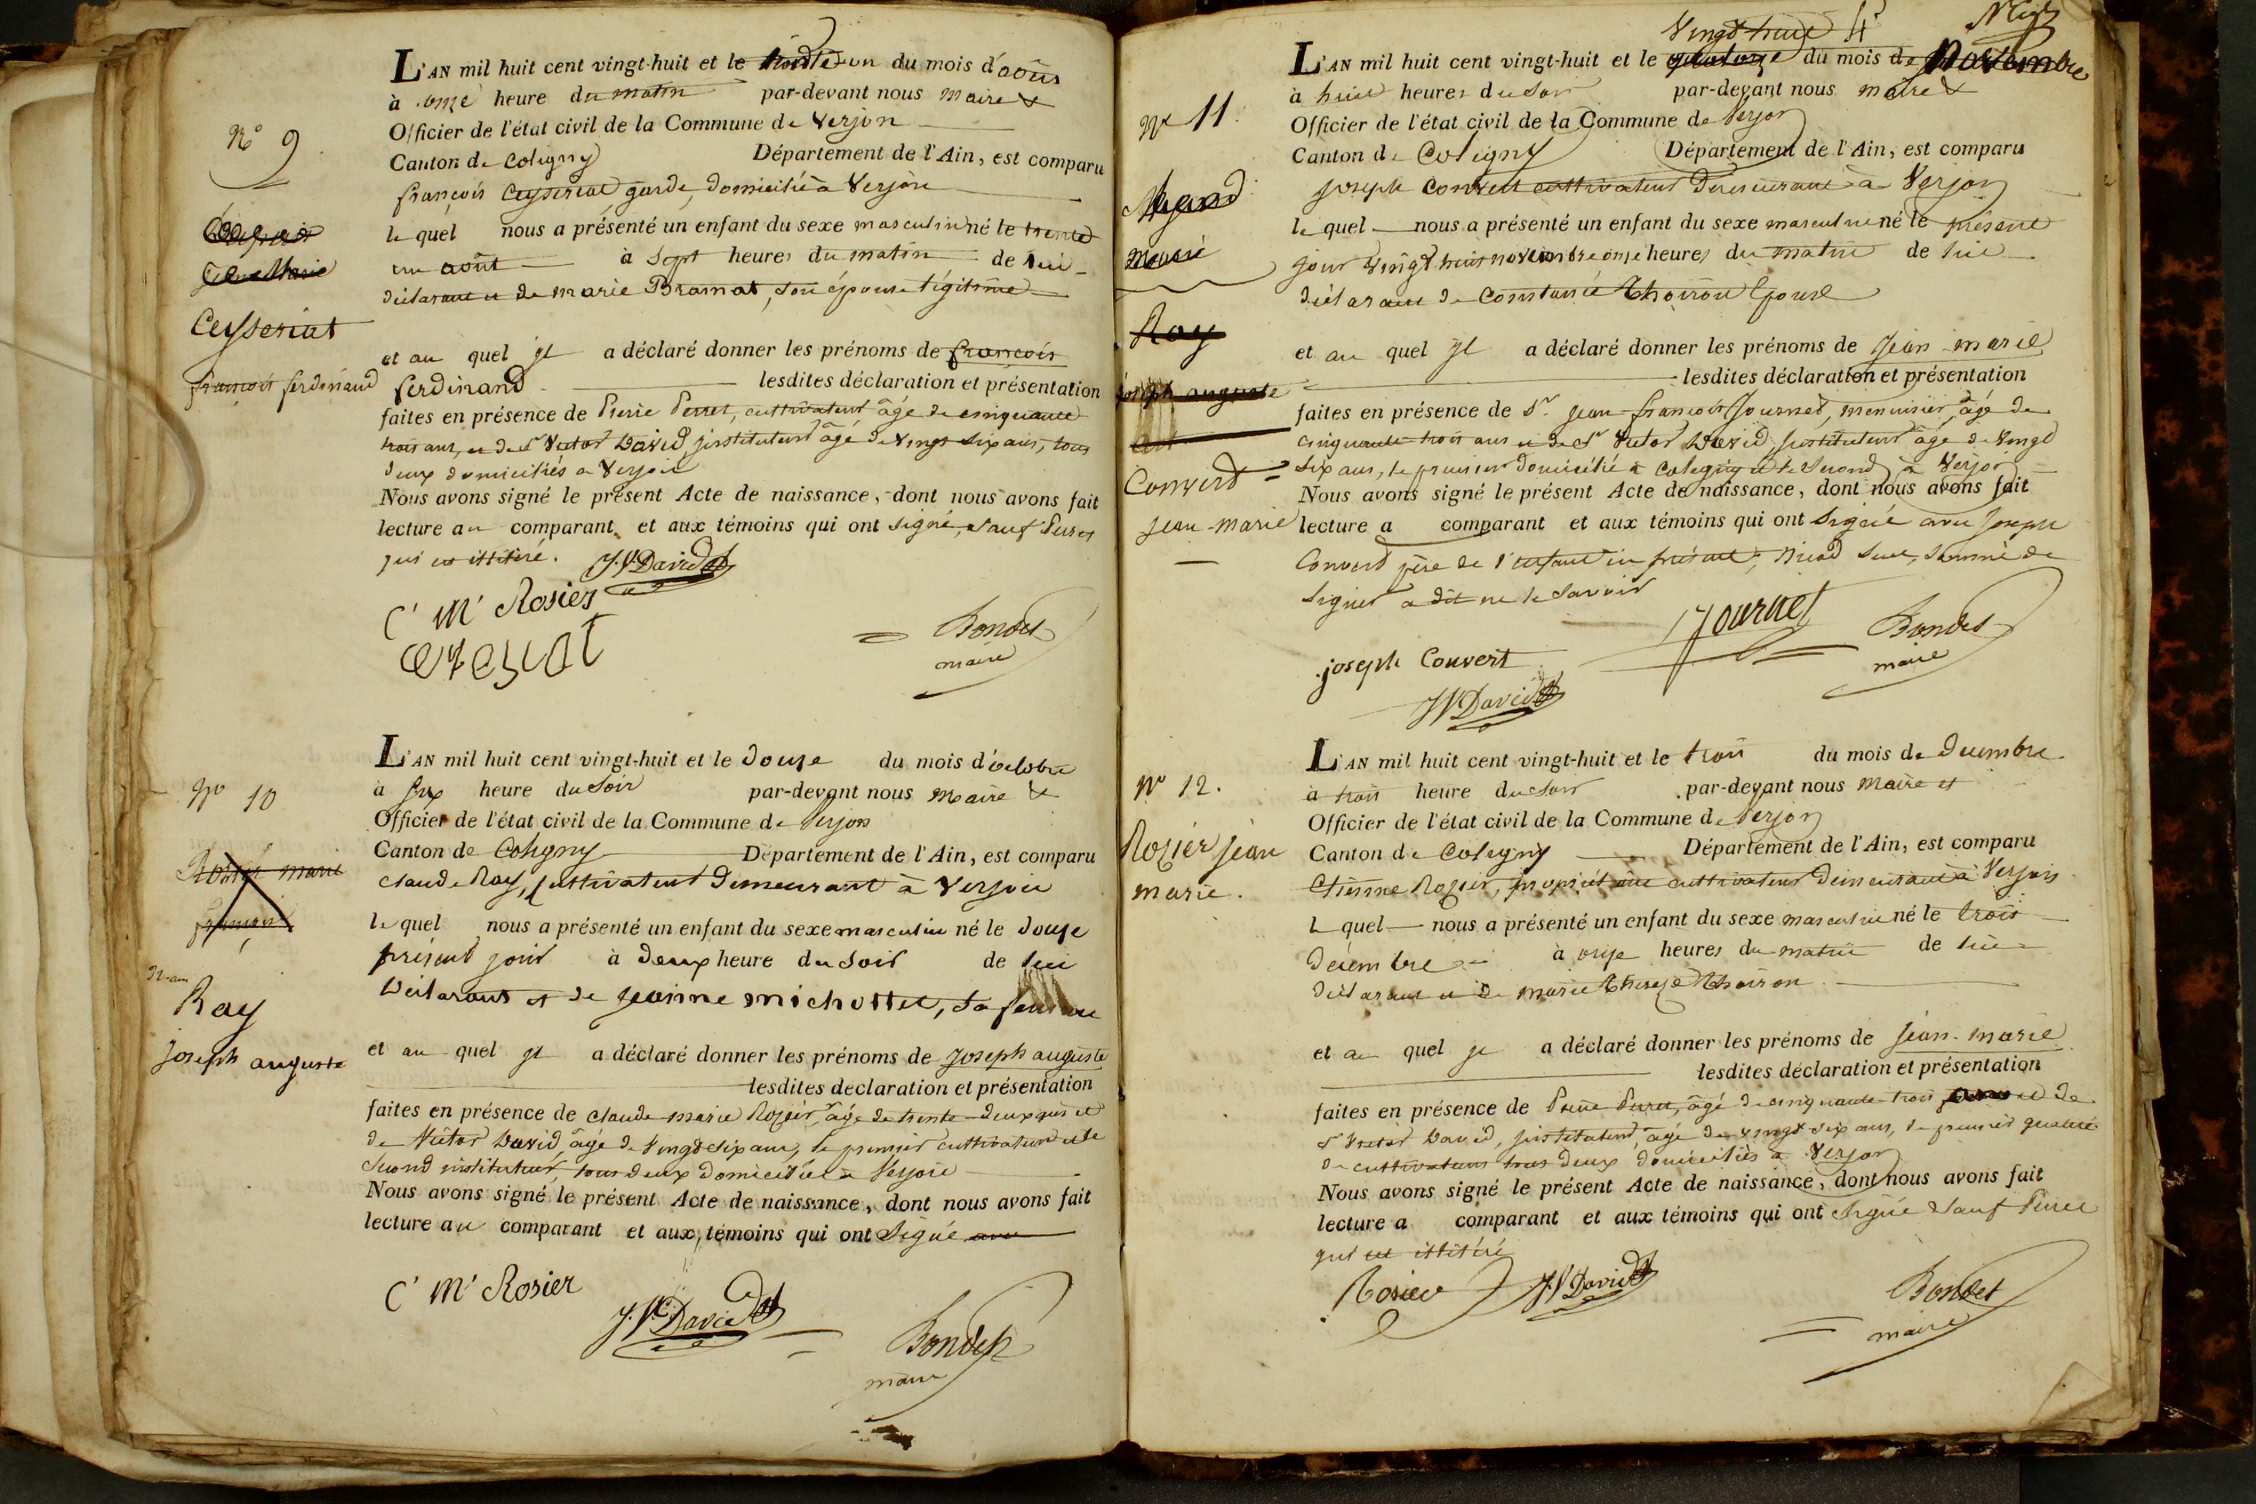 N° 9
Ceyseriat
françois ferdinand
L'AN mil huit cent vingt-huit et le trente un du mois d'août
à onze heure du matin par-devant nous maire &
Officier de l'état civil de la Commune de Verjon
Canton de Coligny Département de l'Ain, est comparu
françois Ceyseriat garde, domicilié à Verjon
le quel nous a présenté un enfant du sexe masculin né le trente
un août à Sept heures du matin de lui
déclarant et de marie Bramat, son épouse légitime
et au quel il a déclaré donner les prénoms de françois
ferdinand lesdites déclaration et présentation
faites en présence de Pierre Perret, cultivateur âgé de cinquante
trois ans, et de Sr Victor David, instituteur âgé de vingt six ans, tous
deux domiciliés a Verjon
Nous avons signé le présent Acte de naissance, dont nous avons fait
lecture au comparant et aux témoins qui ont signé, sauf Perret
qui est illitéré. J.V. David
C' M' Rosier
Bondet
maire
N° 10
Rosier marie
françois
Ray
joseph auguste
L'AN mil huit cent vingt-huit et le douze du mois d'octobre
à six heure du soir par-devant nous maire &
Officier de l'état civil de la Commune de Verjon
Canton de Coligny Département de l'Ain, est comparu
claude Ray, cultivateur demeurant à Verjon
le quel nous a présenté un enfant du sexe masculin né le douze
présent jour à deux heure du soir de lui
déclarant et de jeanne michottet, sa femme
et au quel il a déclaré donner les prénoms de joseph auguste
lesdites declaration et présentation
faites en présence de claude marie Rozier, âgé de trente deux ans et
de Victor David, âgé de vingt six ans, le premier cultivateur et le
second instituteur, tous deux domiciliés à Verjon
Nous avons signé le présent Acte de naissance, dont nous avons fait
lecture au comparant et aux témoins qui ont signé
C' M' Rosier
J.V. David
Bondet
maire
N° 11
Ray
joseph auguste
Convert
jean-marie
vingt huit
L'AN mil huit cent vingt-huit et le quatorze du mois de Novembre
à huit heures du soir par-devant nous maire &
Officier de l'état civil de la Commune de Verjon
Canton de Coligny Département de l'Ain, est comparu
joseph Convert cultivateur demeurant à Verjon
le quel nous a présenté un enfant du sexe masculin né le présent
jour vingt huit novembre onze heures du matin de lui
déclarant de Constance Thoiron épouse
et au quel il a déclaré donner les prénoms de jean-marie
lesdites déclaration et présentation
faites en présence de Sr jean-françois Journet, menuisier, âgé de
cinquante-trois ans et de Sr Victor David instituteur âgé de vingt
six ans, le premier domicilié à Coligny et le second à Verjon
Nous avons signé le présent Acte de naissance, dont nous avons fait
lecture a comparant et aux témoins qui ont signé avec joseph
Convert père de l'enfant sommé de
signer a dit ne le savoir
Journet
Bondet
maire
joseph Convert
J V David
N° 12.
Rozier jean
marie.
L'AN mil huit cent vingt-huit et le trois du mois de décembre
à trois heure du soir par-devant nous maire et
Officier de l'état civil de la Commune de Verjon
Canton de Coligny Département de l'Ain, est comparu
Etienne Rozier, propriétaire cultivateur demeurant à Verjon
le quel nous a présenté un enfant du sexe masculin né le trois
décembre à onze heures du matin de lui
déclarant et de marie thereze Thoiron
et au quel il a déclaré donner les prénoms de jean-marie
lesdites déclaration et présentation
faites en présence de Pierre Perret, âgé de cinquante trois ans et de
Sr Victor David, instituteur, âgé de vingt six ans, le premier
de cultivateur tous deux domiciliés à Verjon
Nous avons signé le présent Acte de naissance, dont nous avons fait
lecture a comparant et aux témoins qui ont signé sauf Perret
qui est illitéré
Rosier J V David
Bondet
maire